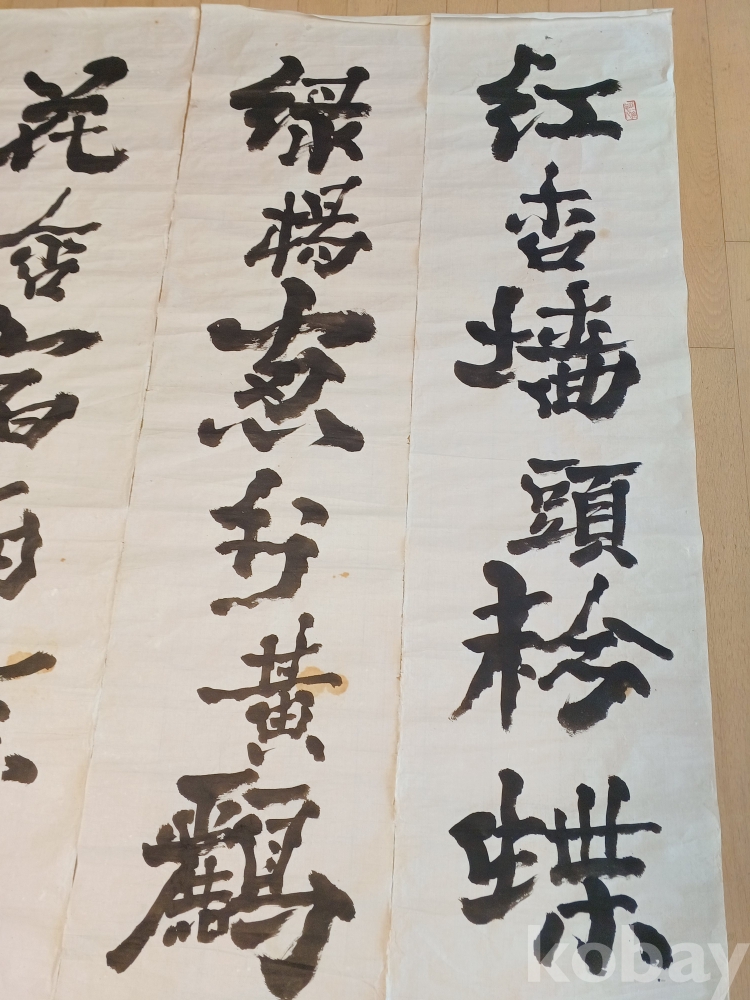 紅杏墻頭粉蝶
綠楊窓外黃鸝
花
kobay